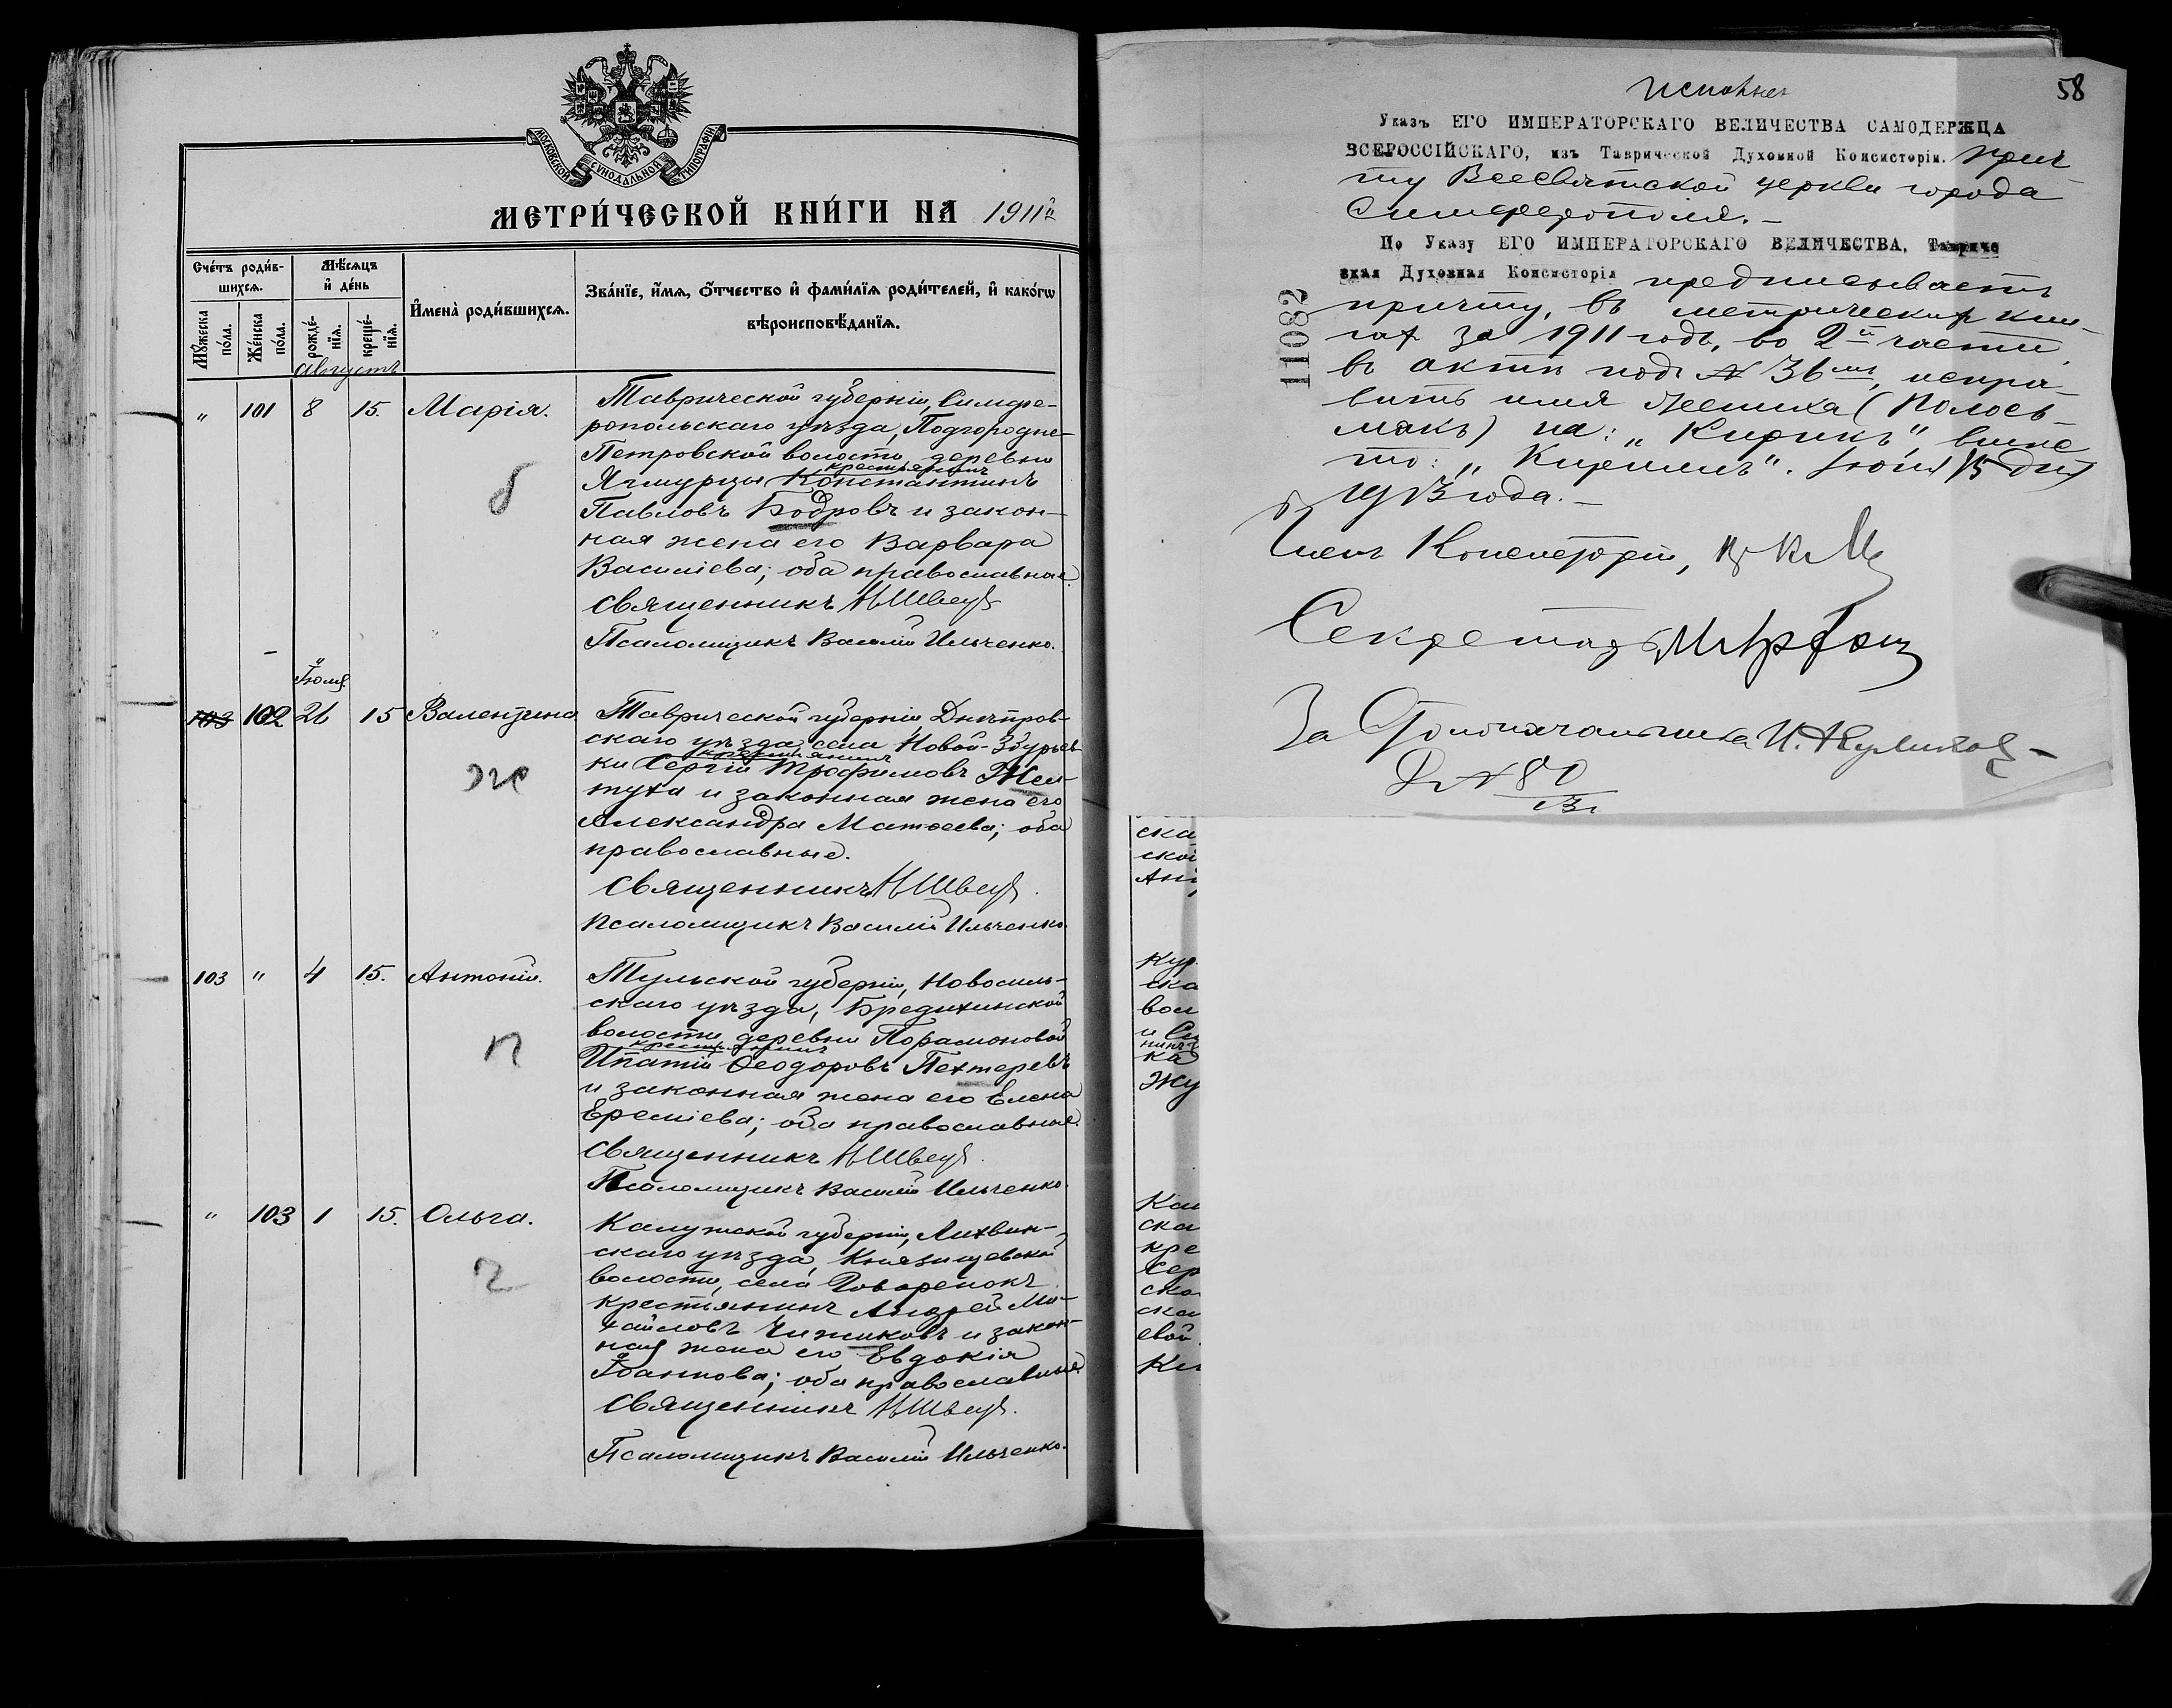 МОСКОВСКОЙ СѴНОДАЛЬНОЙ ТИПОГРАФІИ
МЕТРИ́ЧЕСКОЙ КНИ́ГИ НА 1911й
Сче́тъ роди́в-
шихсѧ.
Мꙋ́жеска по́ла.
Же́нска по́ла.
Мѣ́сѧцъ
и҆ де́нь
рожде́-нїѧ.
креще́-нїѧ.
И҆мена̀ роди́вшихсѧ.
Зва́нїе, и҆́мѧ, ѻ҆́тчество и҆ фами́лїѧ роди́телей, и҆ како́гѡ
вѣроисповѣ́данїѧ.
Августъ
" 101 8 15. Марія.
Таврической губерніи, Симфе-
ропольскаго уѣзда, Подгородне-
Петровской волости, деревни
крестьянинъ
Ягмурцы Константинъ
Павловъ Бодровъ и закон-
ная жена его Варвара
Василіева; оба православные.
б
Священникъ Н Швецъ
Псаломщикъ Василій Ильченко.
Іюля
103 102 26 15 Валентина
Таврической губерніи, Днѣпров-
скаго уѣзда, села Новой-Збурьев-
крестьянинъ
ки Сергій Трофимовъ Жел-
туха и законная жена его
Александра Матѳеева; оба
православные.
ж
Священникъ Н Швецъ.
Псаломщикъ Василій Ильченко.
103 " 4 15. Антоній.
Тульской губерніи, Новосиль-
скаго уѣзда, Бредихинской
волости деревни Парамоновой
крестьянинъ
Ипатій Ѳеодоровъ Пехтеревъ
и законная жена его Елена
Еремѣева; оба православные.
п
Священникъ Н Швецъ.
Псаломщикъ Василій Ильченко.
" 103 1 15. Ольга.
Калужской губерніи, Лихвин-
скаго уѣзда, Князищевской
волости, села Говоренокъ
крестьянинъ Андрей Ми-
хайловъ Чижиковъ и закон-
ная жена его Евдокія
Іоаннова; оба православные.
ч
Священникъ Н Швецъ.
Псаломщикъ Василій Ильченко.
58
Указъ ЕГО ИМПЕРАТОРСКАГО ВЕЛИЧЕСТВА САМОДЕРЖЦА
ВСЕРОССІЙСКАГО, изъ Таврической Духовной Консисторіи. прич
ту Всесвятской церкви города
Симферополя.-
По Указу ЕГО ИМПЕРАТОРСКАГО ВЕЛИЧЕСТВА, Тавриче
ская Духовная Консисторія предписываетъ
причту, въ метрическихъ кни-
гахъ за 1911 годъ, во 2й части,
въ актѣ подъ № 36мъ, испра-
вить имя жениха (Полось-
макъ) на: "Кирикъ" вмѣс
то: "Кириллъ". Іюня 15 дня
1913 года.-
11082
Членъ Консисторіи,
Секретарь
За Столоначальника И. Куликов
№ 80
ска
ской
Ан
Кур
ска
вол
и Си
нинъ
ка
Жу
Кал
ска
кре
Сер
ско
ска
евой
Ки